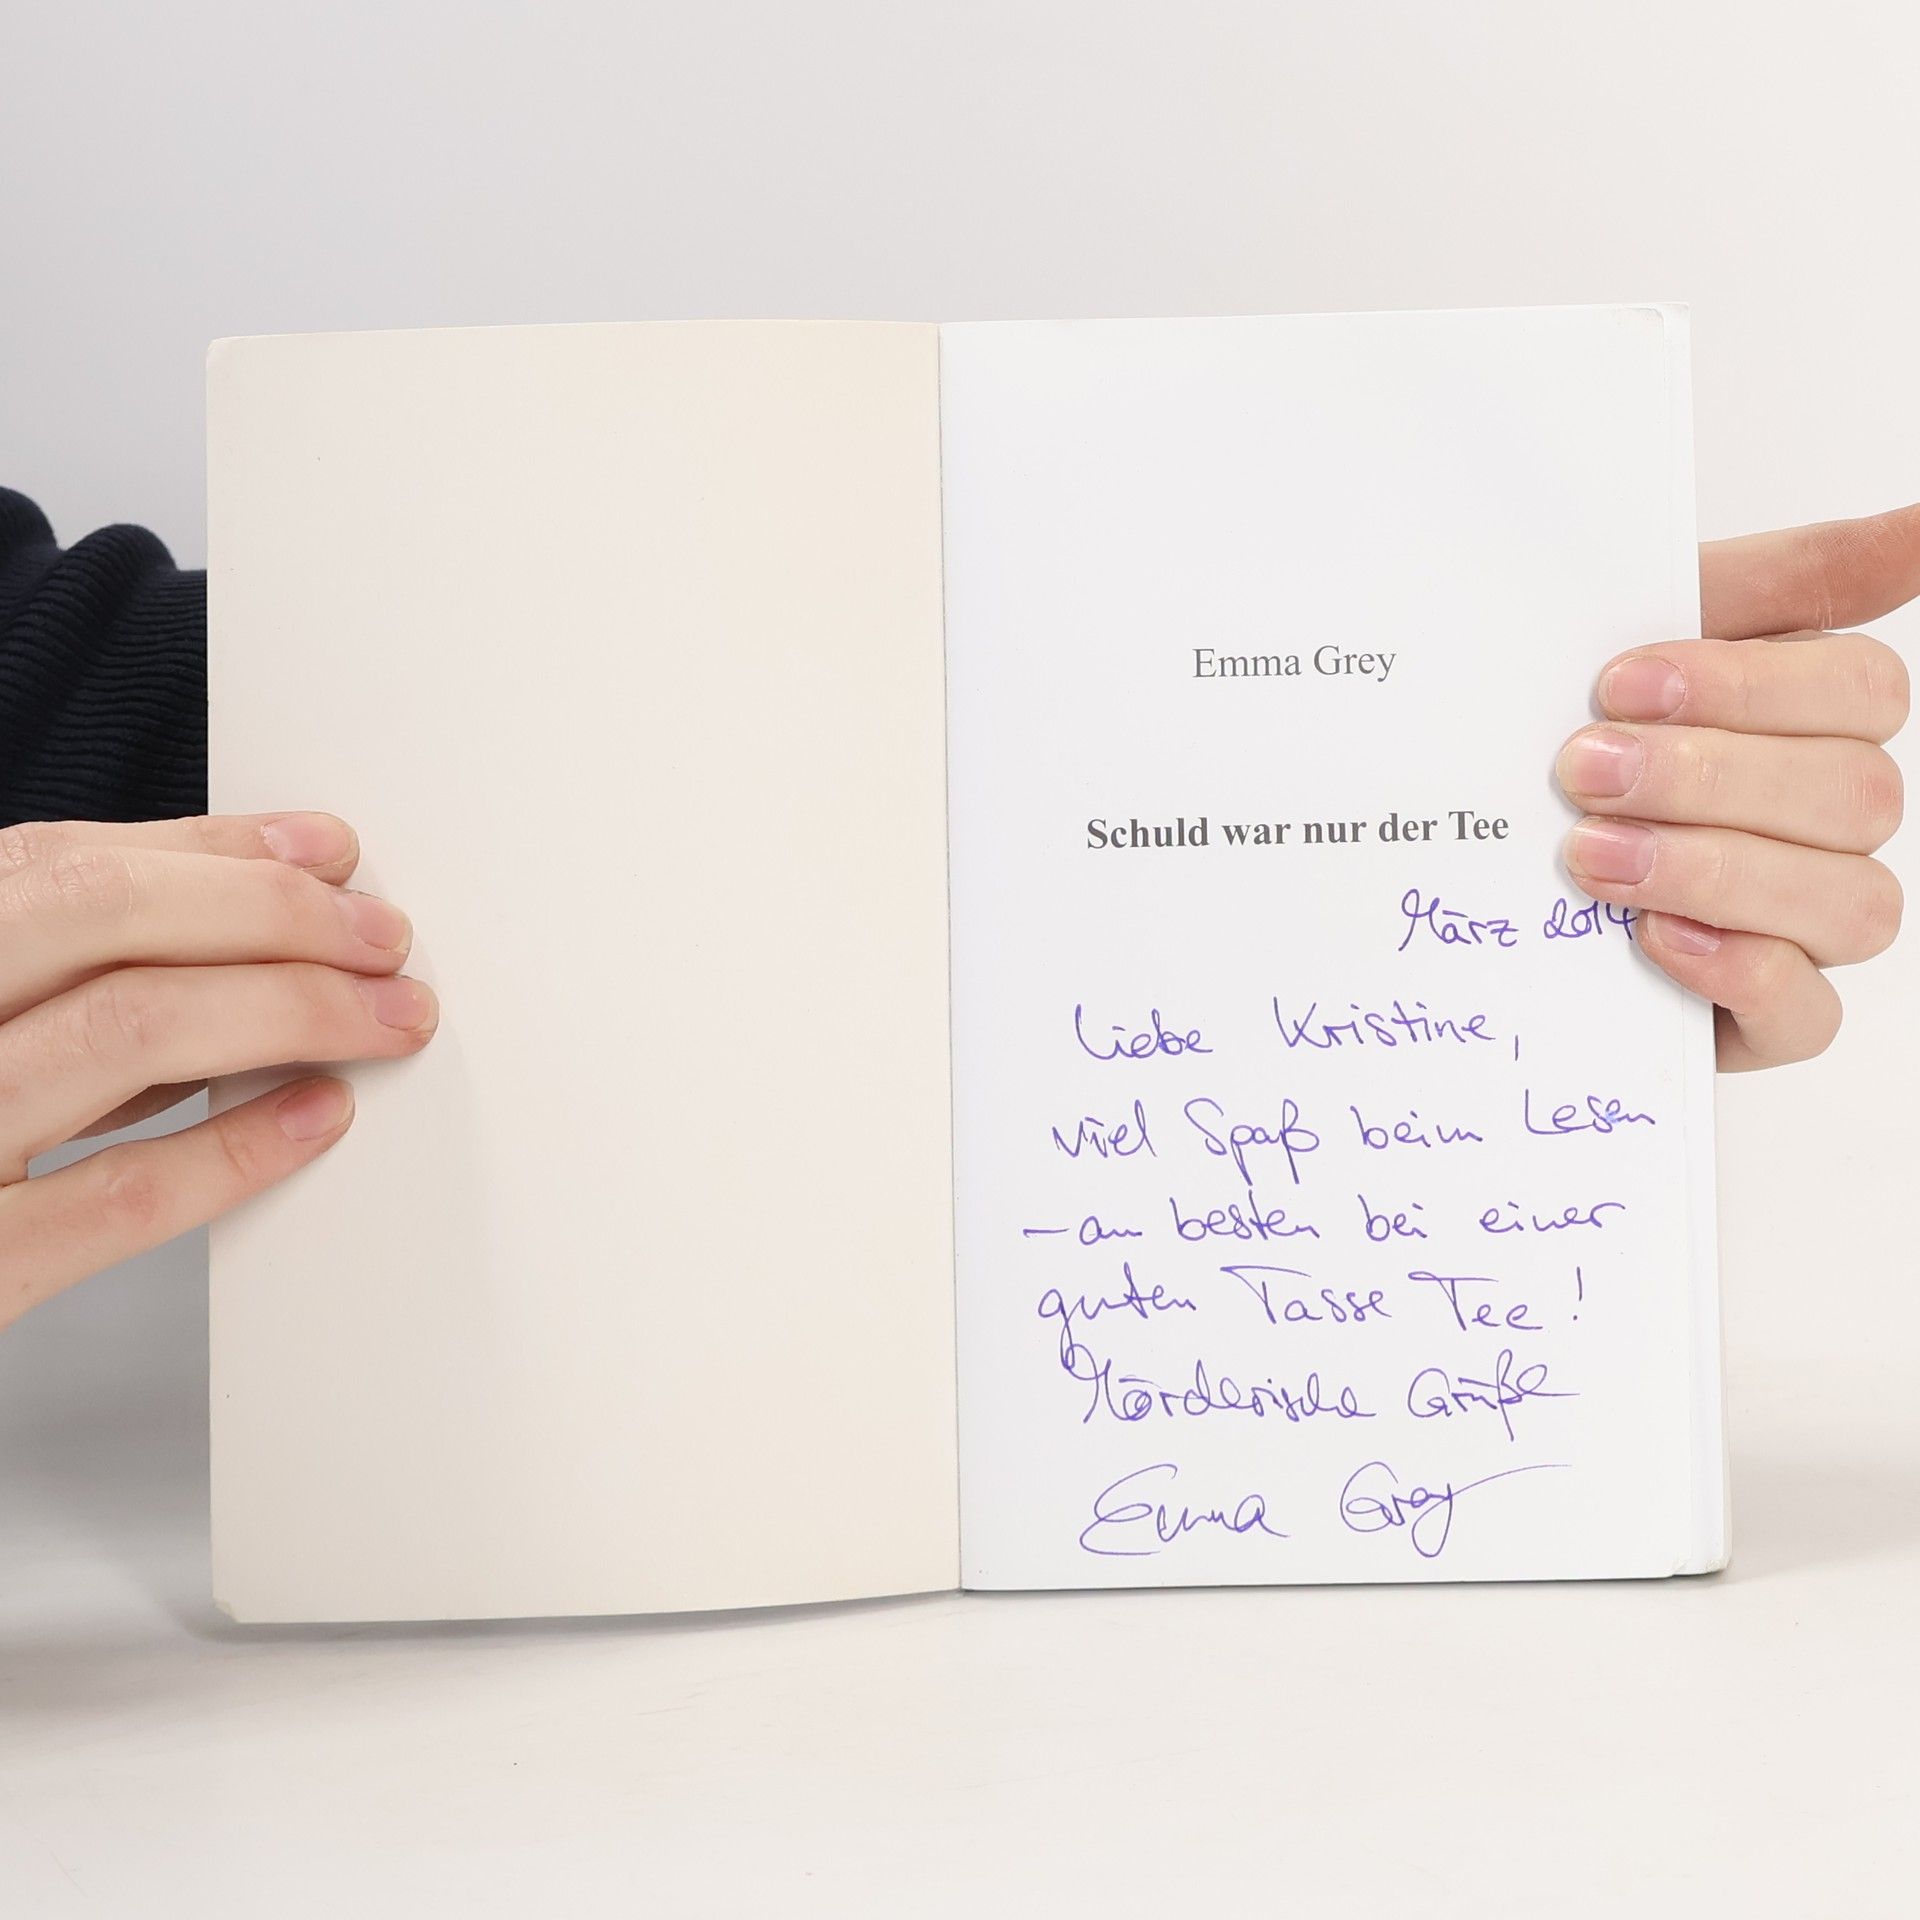 Emma Grey
Schuld war nur der Tee
März 2014
Liebe Kristine,
viel Spaß beim Lesen
– am besten bei einer
guten Tasse Tee!
Mörderische Grüße
Emma Grey